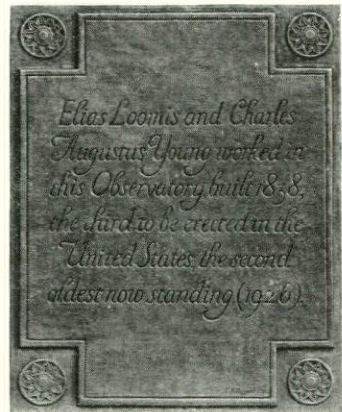 Elias Loomis and Charles
Augustus Young worked in
this Observatory, built 1838,
the third to be erected in the
United States, the second
oldest now standing (1926).